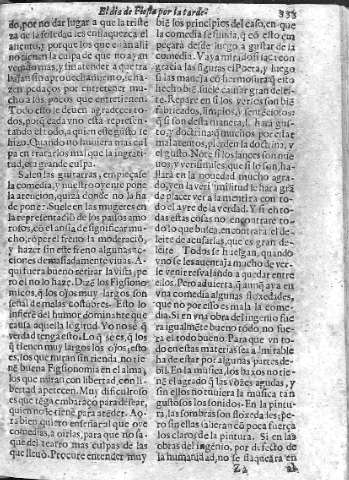 El dia de Fiesta por la tarde. 338
do, por no dar lugar a que la triste
za de la soledad les enflaquezca el
aliento, y porque los que estan alli
no tienen la culpa de que no aya en
vendo mas, y si
sin aprovechamiento, se ha
zen pedaços por entretener mu
cho a los pocos que entretienen
Todo esto le deven agradecer to
dos, porq cada vno està represen-
tando el todo, a quien este gusto se
hizo. Quando no huviera mas cul
pa en tratarlos mal que la ingrati-
tud, era grande culpa.
Salen las guitarras, empieçase
la comedia, y nuestro oyente pone
la atencion, quizà donde no la ha
de poner: Suele en las mugeres en
la representació de los passos amo
rosos, cõ el ansia de significar mu-
cho, rõper el freno la moderació,
y hazer sin este freno algunas ac-
ciones demasiadamente vivas. A-
qui fuera bueno retirar la vista, pe
ro el no lo haze. Dizẽ los Fisiono
micos, q̃ los ojos muy largos son
señal de malas costumbres. Esto lo
infieré del humor dominante que
causa aquella lõgitud. Yo no sé q̃
verdad tenga esto. Lo q̃ se es, q̃ los
q̃ tienen muy largos los ojos, esto
es, los que miran sin rienda, no tie
nẽ buena Fisionomia en el alma,
los que miran con libertad con li-
bertad apetecen. Muy dificultoso
es que tẽga embaraço para desear,
quien no le tiene para atẽder. Ao-
ra bien quiero enseñar al que oye
comedias, a oirlas, para que no sa
que del teatro mas culpas de las
que llevò. Procure entender muy
biẽ los principios del caso, en que
la comedia se funda, q̃ cõ esto em
peçarà desde luego a gustar de la
comedia. Vaya mirando si sacò con
gracia las figuras el Poeta, y luego
si las maneja cõ hermosura, q̃ esto
hecho biẽ suele causar gran delei-
te. Repare en si los versos son biẽ
fabricados, limpios, y sentẽciosos,
q̃ si son desta manera, le harà gus-
to, y doctrina, q̃ muchos por estar
mal atentos, pierden la doctrina, y
el gusto. Note si los lances son nue
vos, y verisimiles, que si lo son, ha-
llarà en la novedad mucho agra-
do, y en la verisimilitud le harà grã
de placer ver a la mentira con to-
do el ayre de la verdad. Y si en to-
das estas cosas no encontrare to-
do lo que busca, encontrarà el de-
leite de acusarlas, que es gran de-
leite. Todos se huelgan, quando
vno se les aventaja mucho de ver-
le venir resvalando a quedar entre
ellos. Pero advierta, q̃ aunq̃ aya en
vna comedia algunas floxedades,
que no por esso es mala la come-
dia. Si en vna obra del ingenio fue
ra igualmẽte bueno todo, no fue-
ra el todo bueno. Para que vn to-
do en estas materias sea admirable
ha de estar por algunas partes de-
bil. En la musica, los baxos no tie-
nẽ el agrado q̃ las vozes agudas, y
sin ellos no tuviera la musica tan
gustosos los sonidos. En la pintu-
ra, las sombras son floxedades, pe-
ro sin ellas salieran cõ poca fuerça
los claros de la pintura. Si en las
obras del ingenio, por defecto de
la humanidad, no se flaqueàra en
Z 2 al-